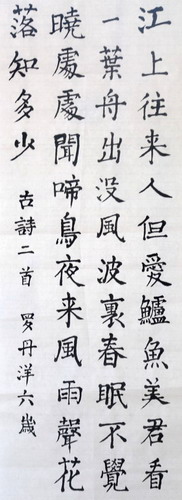 江上往来人但愛鱸魚美君看
一葉舟出没風波裏春眠不覺
曉處處聞啼鳥夜来風雨聲花
落知多少
古詩二首 罗丹洋六歲